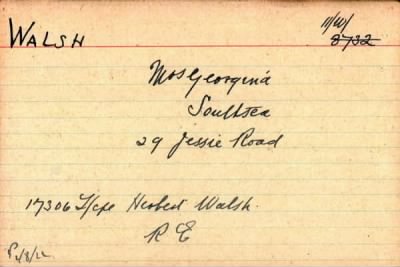 WALSH
11/W/
8732
Mrs Georgina
Southsea
29 Jessie Road
17306 L/Cpl Herbert Walsh.
R E